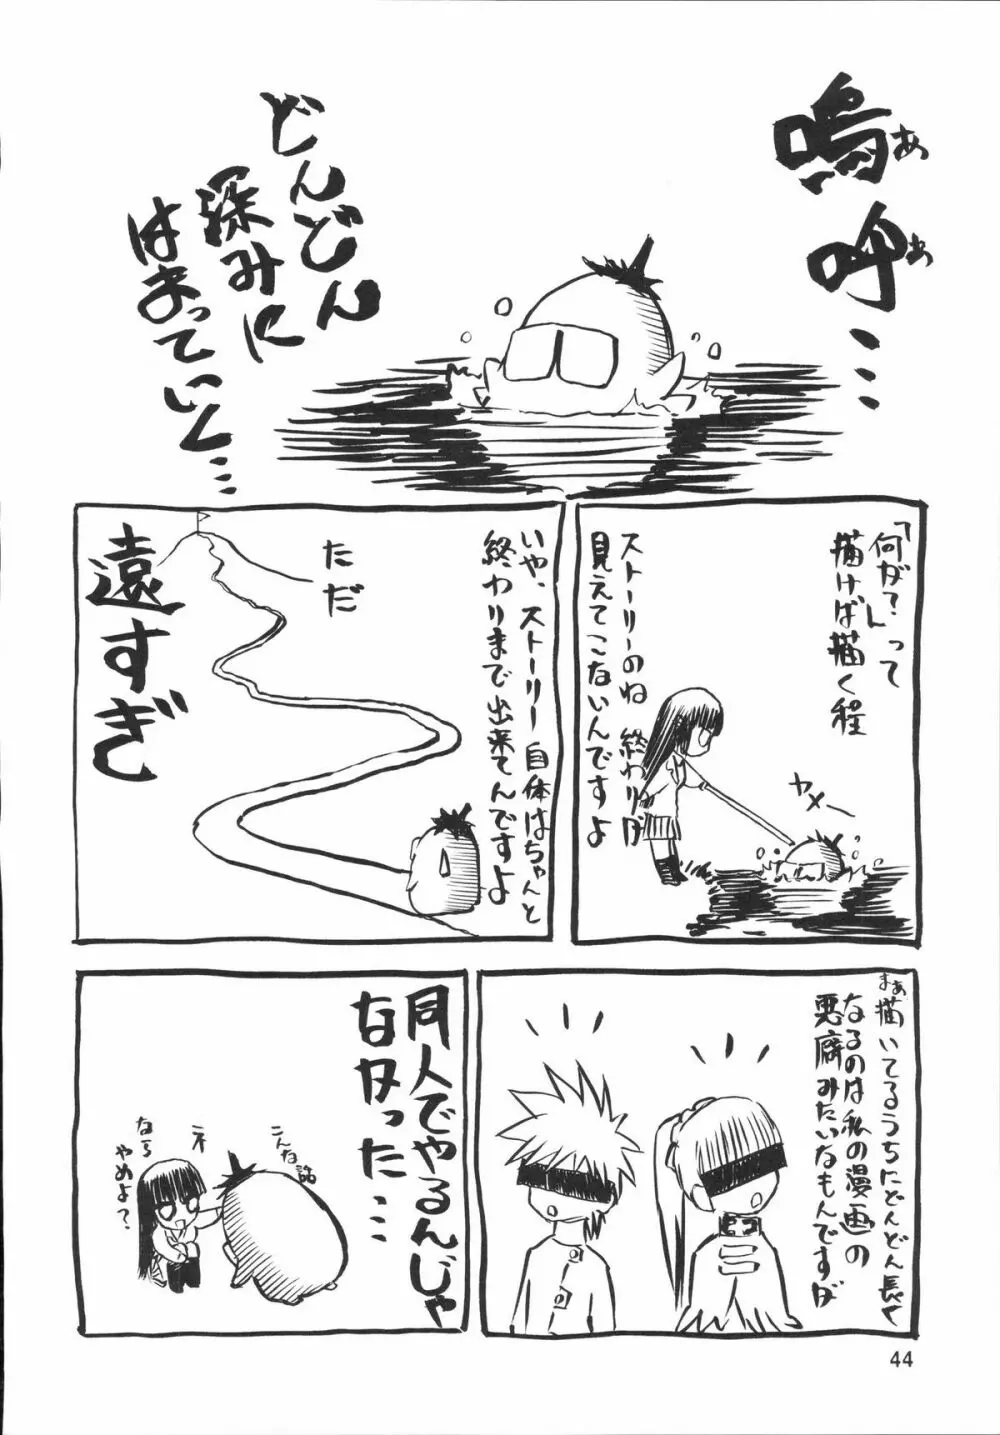 嗚呼…
ああ
どんどん
深みに
はまっていく…
「何が？」って
描けば描く程
ストーリーのね 終わりが
見えてこないんですよ
ヤメー
いや、ストーリー自体はちゃんと
終わりまで出来てんですよ
ただ
遠すぎ
まぁ描いてるうちにどんどん長く
なるのは私の漫画の
悪癖みたいなもんですが
同人でやるんじゃ
なかった…
こんな話
ネ
なら
やめよ？
44